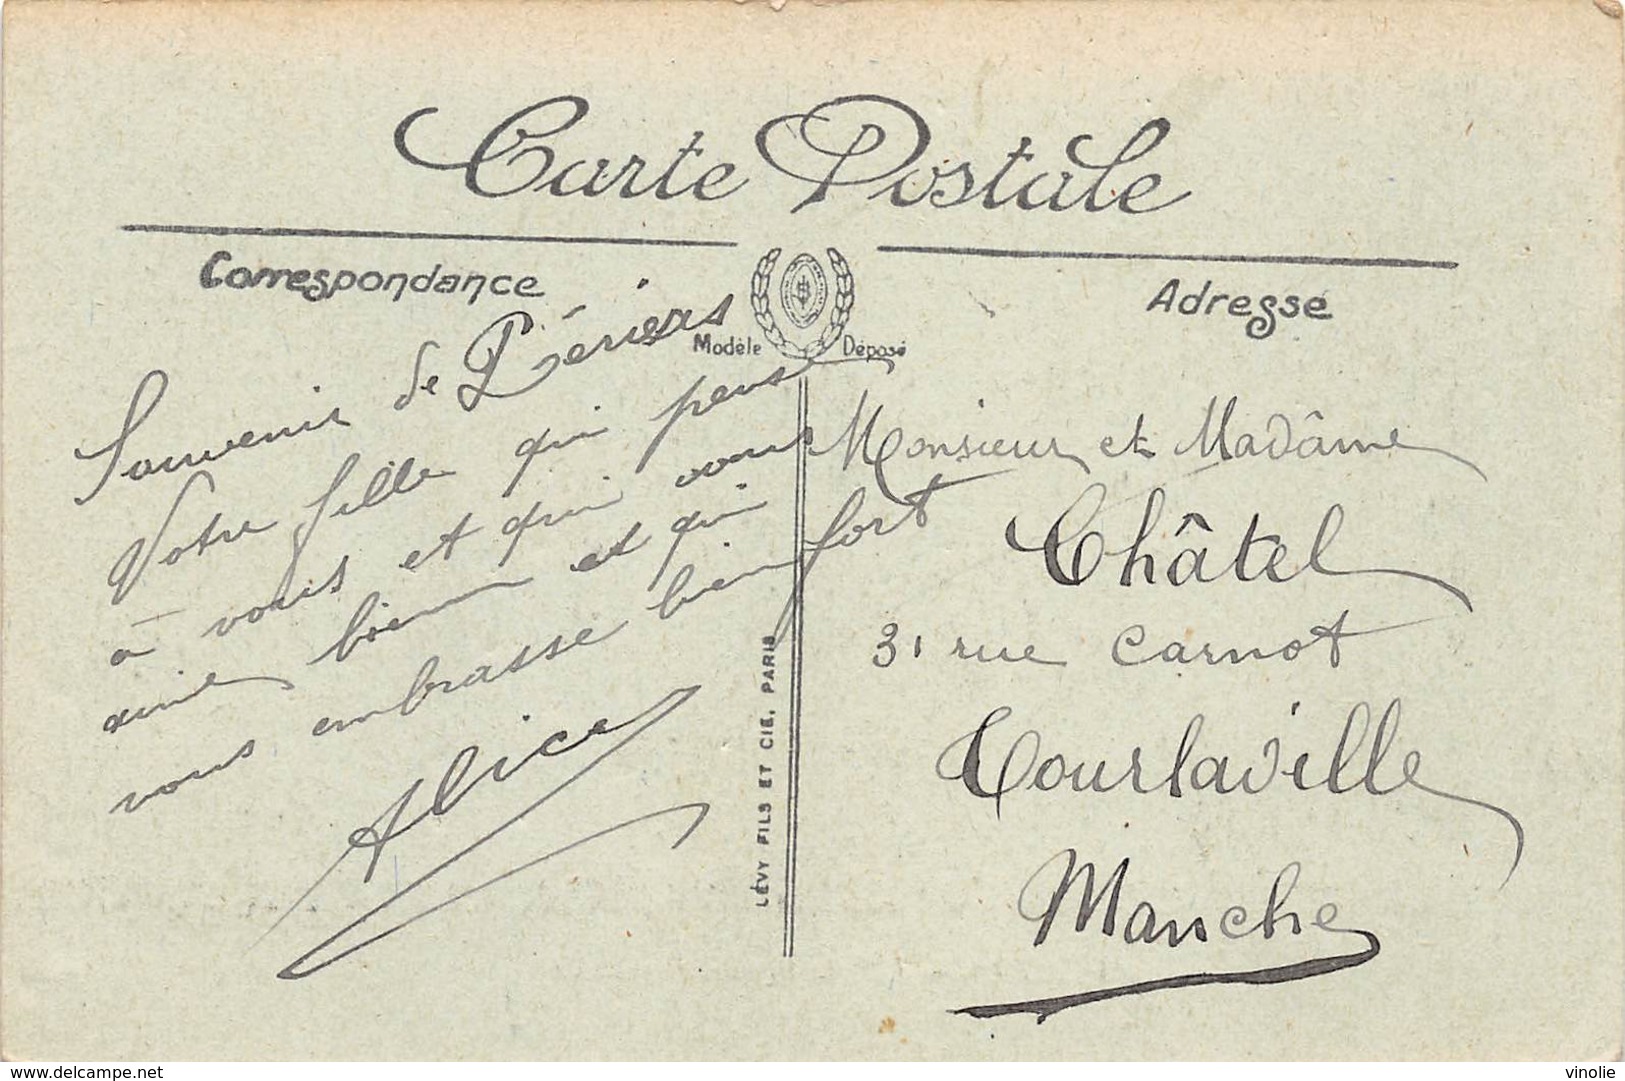 Carte Postale
Correspondance
Modèle Déposé
Adresse
Souvenir de Périers
Votre fille qui pense
à vous et qui vous
aime bien et qui
vous embrasse bien fort
Alice
LÉVY FILS ET CIE, PARIS
Monsieur et Madâme
Châtel
31 rue Carnot
Tourlaville
Manche
delcampe.net
vinolie